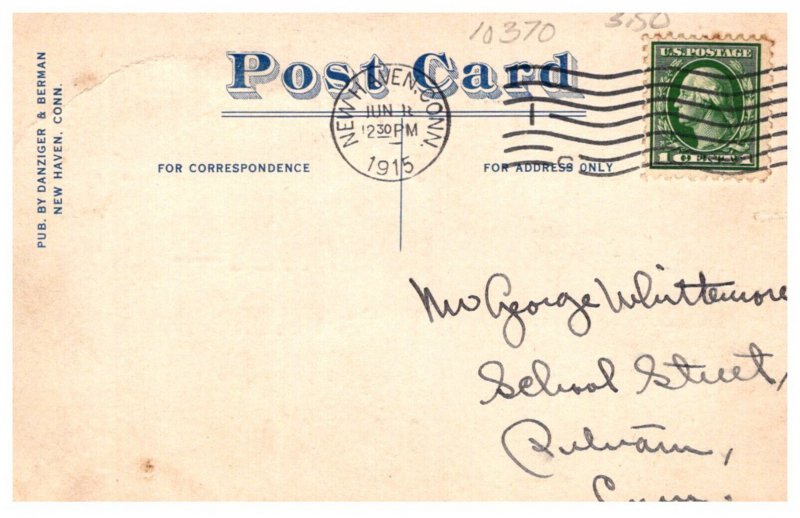 10370 3.50
PUB. BY DANZIGER & BERMAN
NEW HAVEN, CONN.
Post Card
NEW HAVEN, CONN.
JUN
12 30 PM
1915
U.S. POSTAGE
1 CENT 1
FOR CORRESPONDENCE
FOR ADDRESS ONLY
Mr George Whittemore
School Street,
Putnam,
Conn.